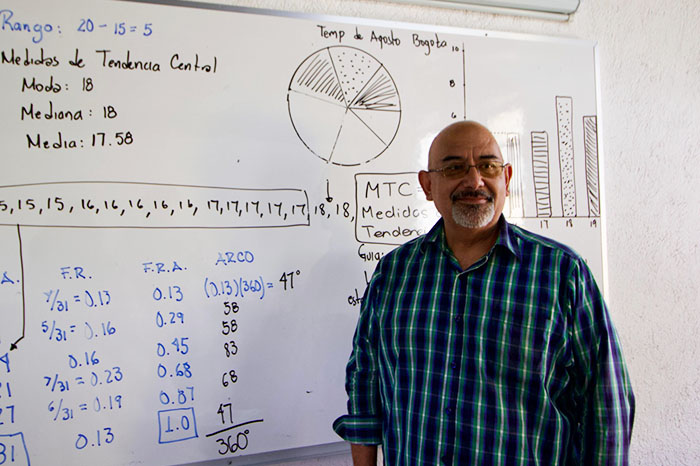 Rango: 20 - 15 = 5
Medidas de Tendencia Central
Moda: 18
Mediana: 18
Media: 17.58
Temp de Agosto Bogota
10
8
6
17 18 19
5, 15, 15, 16, 16, 16, 16, 16, 17, 17, 17, 17, 17, 18, 18,
MTC
Medidas
Tendenc
Guia:
A. F.R. F.R.A. ARCO
/31 = 0.13 0.13 (0.13)(360) = 47°
5/31 = 0.16 0.29 58
58
0.16 0.45 83
7/31 = 0.23 0.68 68
6/31 = 0.19 0.87
0.13 1.0 47
360°
21
27
31